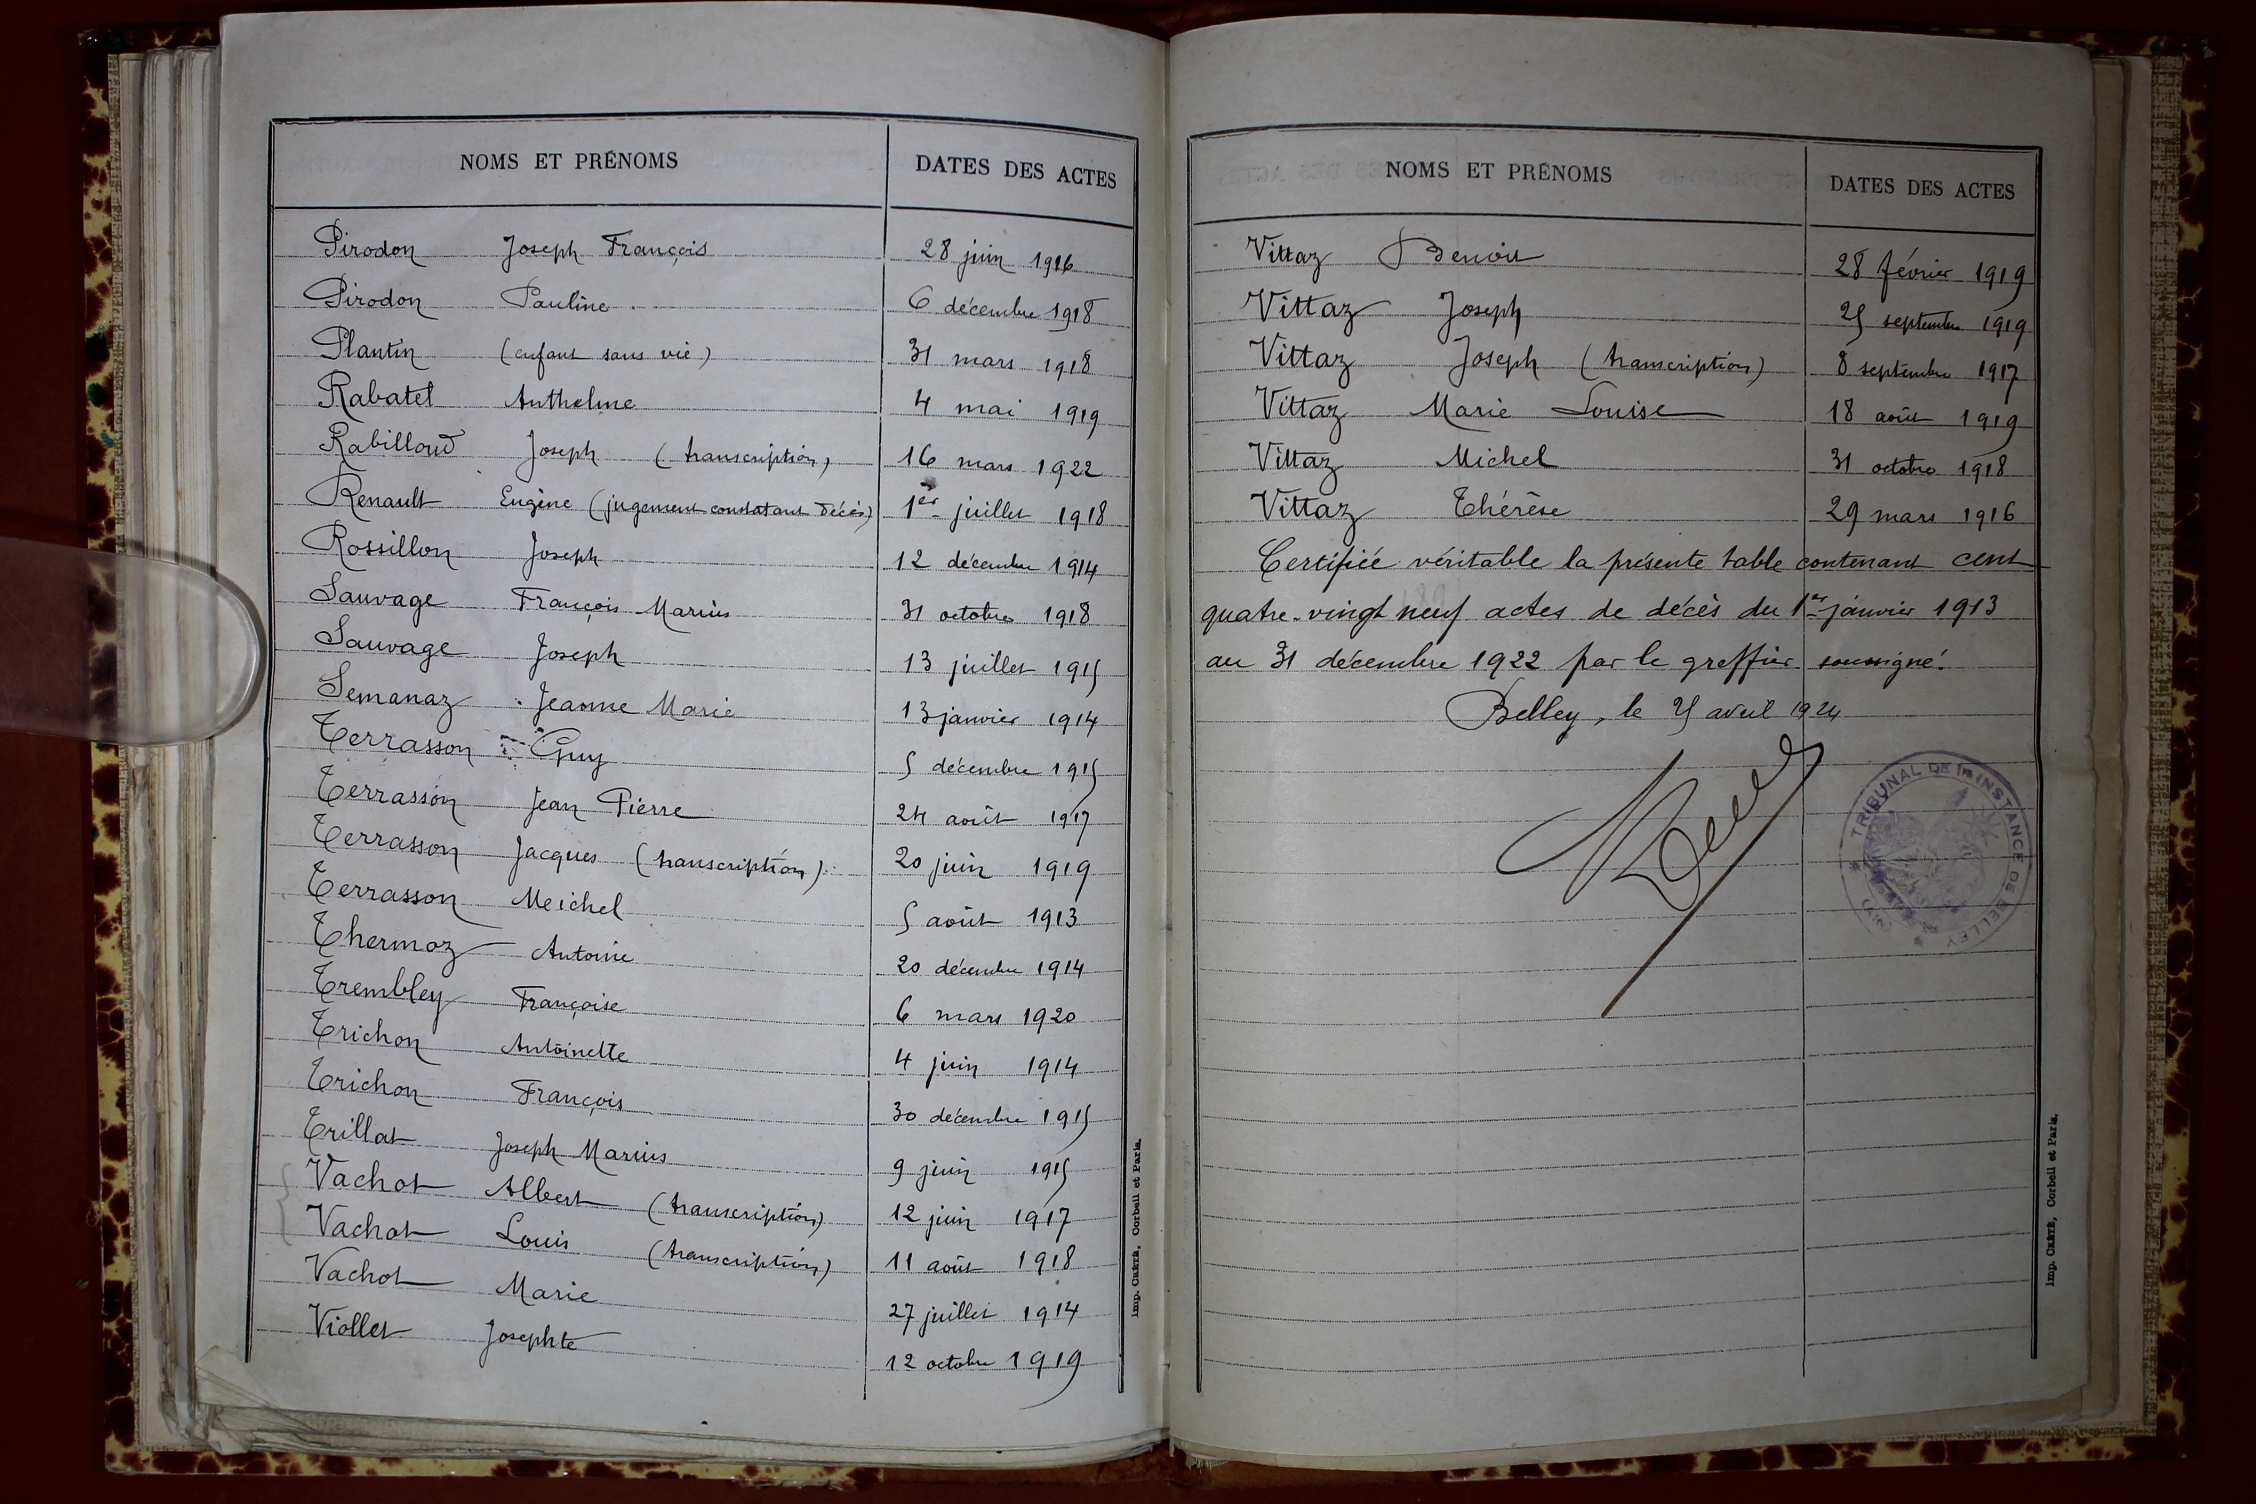 NOMS ET PRÉNOMS DATES DES ACTES
Pirodon Joseph François 28 juin 1916
Pirodon Pauline 6 décembre 1918
Plantin (enfant sans vie) 31 mars 1918
Rabatel Anthelme 4 mai 1919
Rabilloud Joseph (transcription) 16 mars 1922
Renault Eugène (jugement constatant décès) 1er juillet 1918
Rossillon Joseph 12 décembre 1914
Sauvage François Marius 31 octobre 1918
Sauvage Joseph 13 juillet 1915
Semanaz Jeanne Marie 13 janvier 1914
Terrasson Guy 5 décembre 1915
Terrasson Jean Pierre 24 août 1917
Terrasson Jacques (transcription) 20 juin 1919
Terrasson Meichel 5 août 1913
Thermoz Antoine 20 décembre 1914
Trembley Françoise 6 mars 1920
Trichon Antoinette 4 juin 1914
Trichon François 30 décembre 1915
Trillat Joseph Marius 9 juin 1915
Vachot Albert (transcription) 12 juin 1917
Vachot Louis (transcription) 11 août 1918
Vachot Marie 27 juillet 1914
Viollet Josephte 12 octobre 1919
Imp. CRÉTÉ, Corbeil et Paris.
NOMS ET PRÉNOMS DATES DES ACTES
Vittaz Benoit 28 février 1919
Vittaz Joseph 25 septembre 1919
Vittaz Joseph (transcription) 8 septembre 1917
Vittaz Marie Louise 18 août 1919
Vittaz Michel 31 octobre 1918
Vittaz Thérèse 29 mars 1916
Certifiée véritable la présente table contenant cent
quatre-vingt neuf actes de décès du 1er janvier 1913
au 31 décembre 1922 par le greffier soussigné.
Belley, le 25 avril 1924
TRIBUNAL DE 1re INSTANCE DE BELLEY
(AIN)
Imp. CRÉTÉ, Corbeil et Paris.